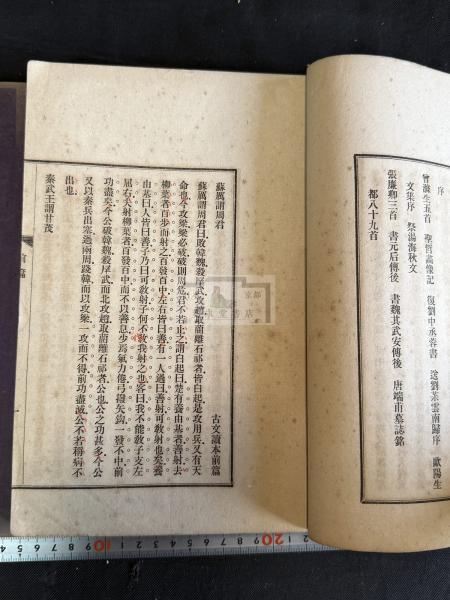 序
曾滌生五首 聖哲畫像記 復劉中丞蓉書 送劉茮雲南歸序 歐陽生
文集序 祭湯海秋文
張廉卿三首 書元后傳後 書魏其武安傳後 唐端甫墓誌銘
都八十九首
古文讀本前篇
蘇厲謂周君
蘇厲謂周君曰敗韓魏殺犀武攻趙取藺離石祁者皆白起是攻用兵又有天
命也今攻梁梁必破破則周危君不若止之謂白起曰楚有養由基者善射去
柳葉者百步而射之百發百中左右皆曰善有一人過曰善射可敎射也矣養
由基曰人皆曰善子乃曰可敎射子何不敎我射之也客曰我不能敎子支左
屈右夫射柳葉者百發百中而不以善息少焉氣力倦弓撥矢鉤一發不中前
功盡矣今公破韓魏殺犀武而北攻趙取藺離石祁者公也公之功甚多今公
又以秦兵出塞過兩周踐韓而以攻梁一攻而不得前功盡滅公不若稱病不
出也
秦武王謂甘茂
前篇
京都
堂書店
10
20